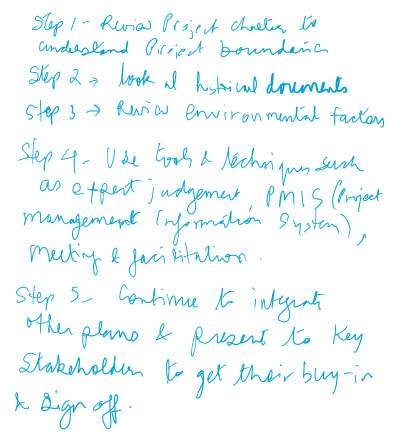 Step 1 - Review Project charter to
understand Project boundaries
Step 2 → look at historical documents
Step 3 → Review environmental factors
Step 4 - Use tools & techniques such
as expert judgement, PMIS (Project
management Information System),
Meeting & facilitation.
Step 5 - Continue to integrate
other plans & present to Key
Stakeholders to get their buy-in
& sign off.